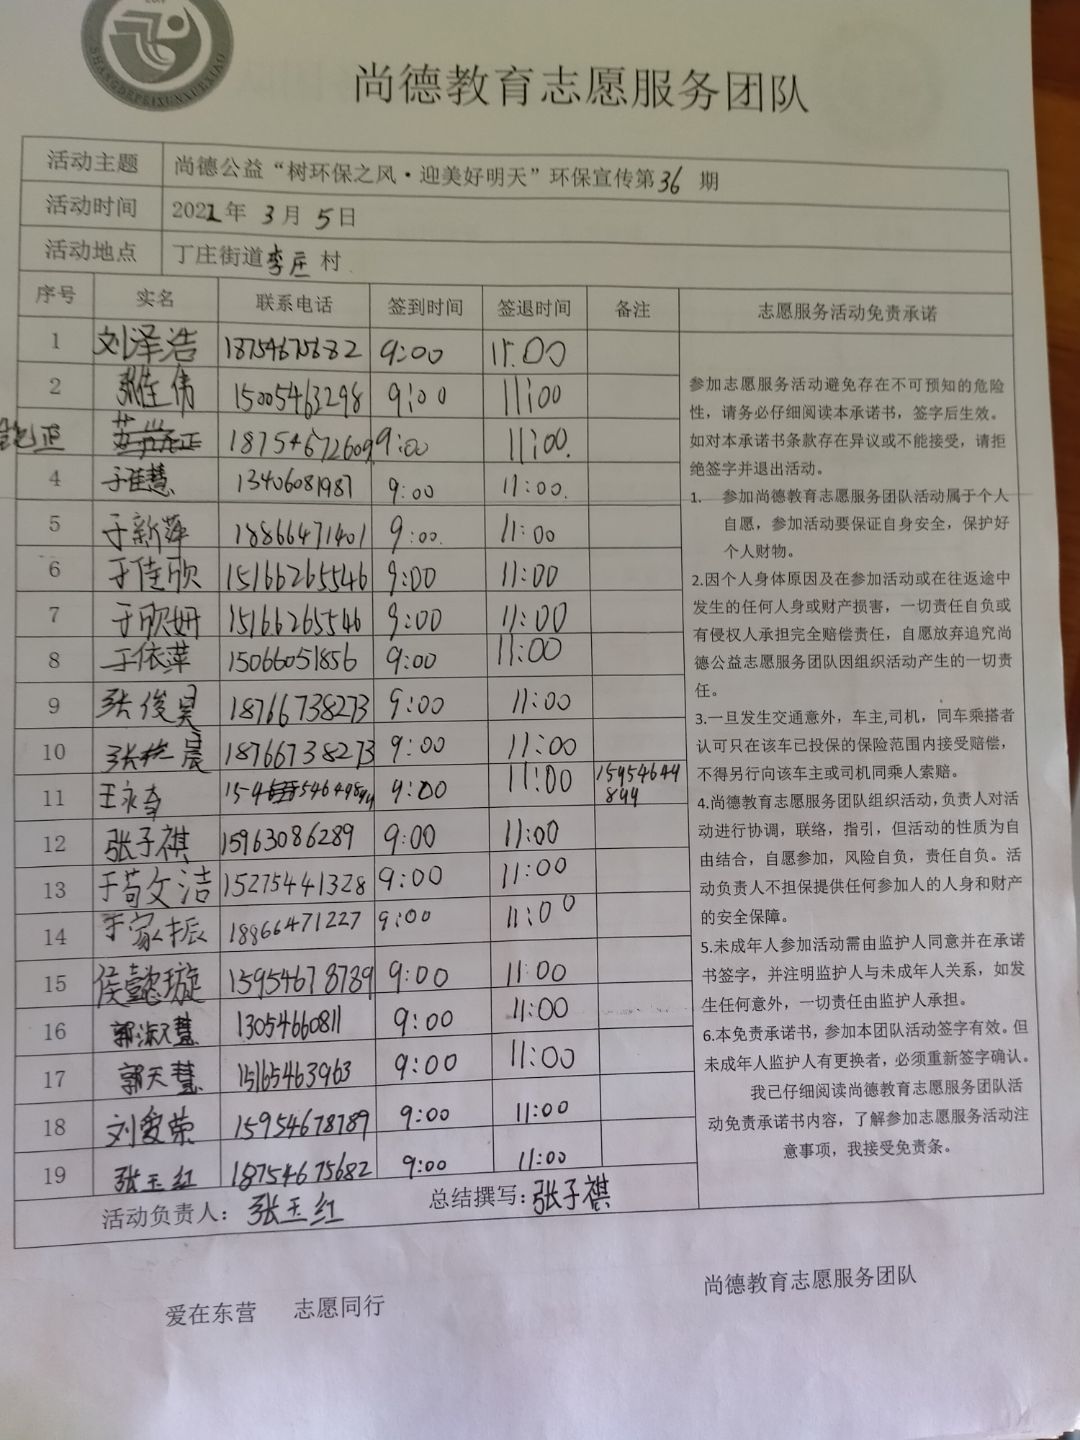 SHANGDEPEIXUNXUEXIAO
尚德教育志愿服务团队
活动主题 尚德公益“树环保之风·迎美好明天”环保宣传第36期
活动时间 2022年 3月 5日
活动地点 丁庄街道李庄村
序号 实名 联系电话 签到时间 签退时间 备注 志愿服务活动免责承诺
1 刘泽浩 18754675682 9:00 11:00
2 张佳伟 15005463298 9:00 11:00
18754672609 9:00 11:00.
4 于佳慧 13406081987 9:00 11:00.
5 于新萍 18866471401 9:00. 11:00
6 于佳欣 15166265546 9:00 11:00
7 于欣妍 15166265546 9:00 11:00
8 于依萍 15066051856 9:00 11:00
9 张俊昊 18766738273 9:00 11:00
10 张 晨 18766738273 9:00 11:00
11 王永奇 9:00 11:00 15954649
899
12 张子祺 15963086289 9:00 11:00
13 于苟文洁 15275441328 9:00 11:00
14 于家振 18866471227 9:00 11:00
15 侯懿璇 15954678789 9:00 11:00
16 郭淑慧 13054660811 9:00 11:00
17 郭天慧 15165463963 9:00 11:00
18 刘爱荣 15954678789 9:00 11:00
19 张玉红 18754675682 9:00 11:00
活动负责人：张玉红 总结撰写：张子祺
参加志愿服务活动避免存在不可预知的危险
性，请务必仔细阅读本承诺书，签字后生效。
如对本承诺书条款存在异议或不能接受，请拒
绝签字并退出活动。
1. 参加尚德教育志愿服务团队活动属于个人
自愿，参加活动要保证自身安全，保护好
个人财物。
2.因个人身体原因及在参加活动或在往返途中
发生的任何人身或财产损害，一切责任自负或
有侵权人承担完全赔偿责任，自愿放弃追究尚
德公益志愿服务团队因组织活动产生的一切责
任。
3.一旦发生交通意外，车主,司机，同车乘搭者
认可只在该车已投保的保险范围内接受赔偿，
不得另行向该车主或司机同乘人索赔。
4.尚德教育志愿服务团队组织活动,负责人对活
动进行协调，联络，指引，但活动的性质为自
由结合，自愿参加，风险自负，责任自负。活
动负责人不担保提供任何参加人的人身和财产
的安全保障。
5.未成年人参加活动需由监护人同意并在承诺
书签字，并注明监护人与未成年人关系，如发
生任何意外，一切责任由监护人承担。
6.本免责承诺书，参加本团队活动签字有效。但
未成年人监护人有更换者，必须重新签字确认。
我已仔细阅读尚德教育志愿服务团队活
动免责承诺书内容，了解参加志愿服务活动注
意事项，我接受免责条。
尚德教育志愿服务团队
爱在东营 志愿同行